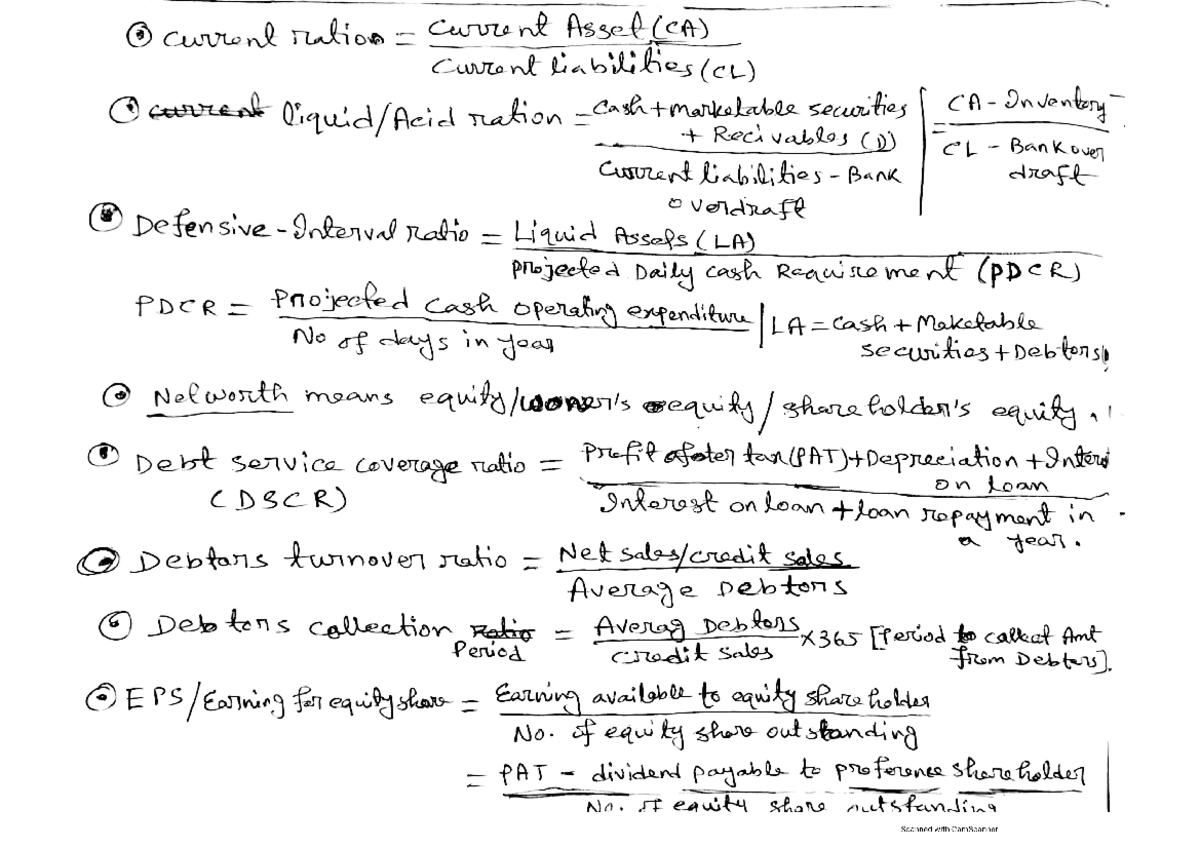 Current ration = Current Asset (CA)
Current liabilities (CL)
current liquid/Acid ration = Cash + marketable securities + Recivables (D) | = CA - Inventory
Current liabilities - Bank overdraft | CL - Bank over draft
Defensive - Interval ratio = Liquid Assets (LA)
Projected Daily cash Requirement (PDCR)
PDCR = Projected cash operating expenditure | LA = cash + Maketable
No of days in year securities + Debtors
Networth means equity/wooner's equity/shareholder's equity.
Debt service coverage ratio = Profit after tax (PAT) + Depreciation + Interest
(DSCR) on loan
Interest on loan + loan repayment in
a year.
Debtors turnover ratio = Net sales/credit sales
Average Debtors
Debtors collection ratio = Averag Debtors X 365 [Period to callcat Amt
Period credit sales from Debters].
EPS/Earning for equity share = Earning available to equity shareholder
No. of equity share outstanding
= PAT - dividend payable to preference shareholder
No. of equity share outstanding
Scanned with CamScanner